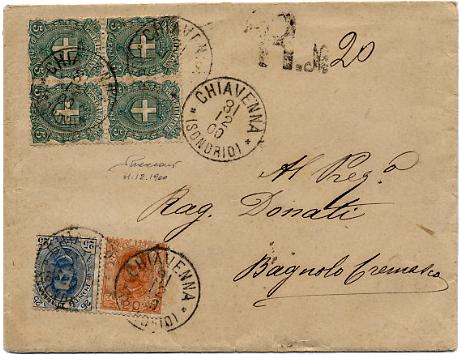 R. № 20
CHIAVENNA
31
12
00
* (SONDRIO) *
CHIAVENNA
CHIAVENNA
31.12.1900
Al Preg.o
Rag. Donati
Bagnolo Cremasco
5 5
5 5
25 25
25
CHIAVENNA
(SONDRIO)